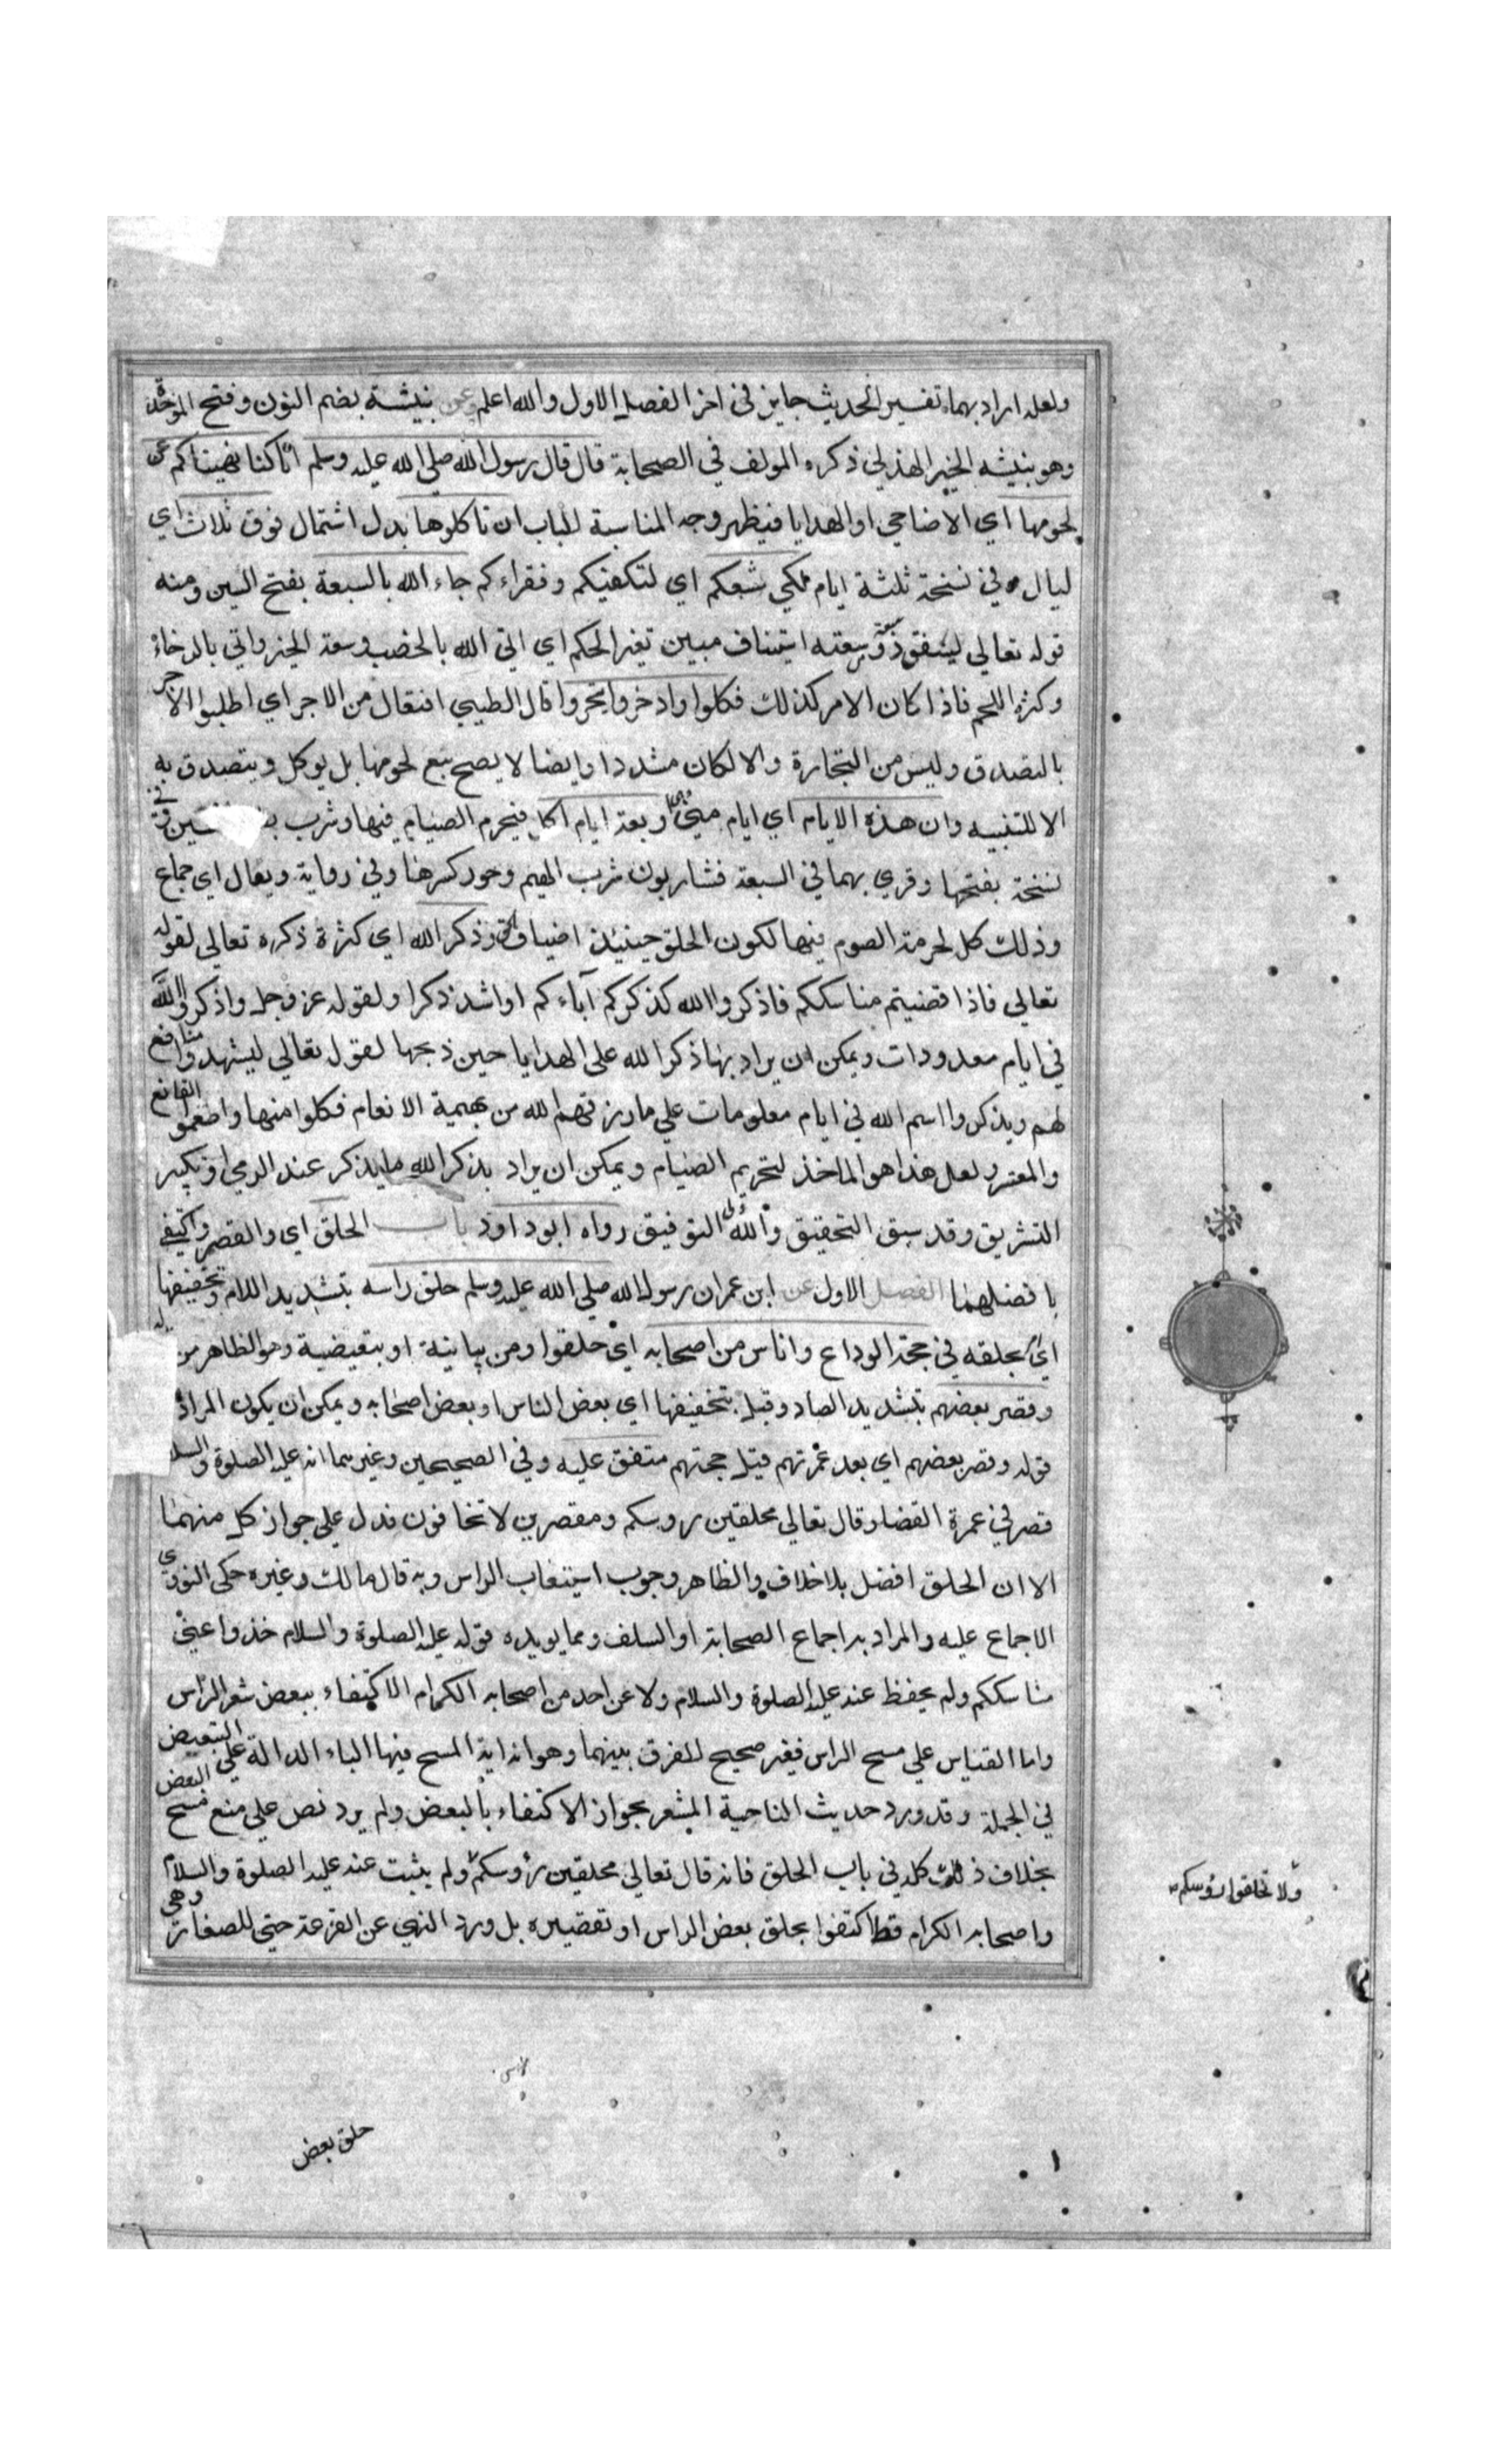 ولعله اراد بهما تفسير الحديث جابر في اخر الفصل الاول والله اعلم وعن نبيشة بضم النون وفتح الموحدة
وهو نبيشه الخير الهذلي ذكره المولف في الصحابة قال قال رسول الله صلى الله عليه وسلم انا كنا نهيناكم عن
لحومها اي الاضاحي او الهدايا فيظهر وجه المناسبة للباب ان تاكلوها بدل اشتمال فوق ثلاث اي
ليال وفي نسخة ثلثة ايام لكي تسعكم اي لتكفيكم وفقراءكم جاء الله بالسعة بفتح السين ومنه
قوله تعالي لينفق ذو سعة من سعته استيناف مبين تغير الحكم اي اتى الله بالخصب وسعة الخير واتي بالرخاء
وكثرة اللحم فاذا كان الامر كذلك فكلوا وادخروا وايتجروا قال الطيبي افتعال من الاجر اي اطلبوا الاجر
بالتصدق وليس من التجارة والا لكان مشددا وايضا لا يصح بيع لحومها بل يوكل ويتصدق به
الا للتنبيه وان هذه الايام اي ايام مني وهي اربعة ايام اكل فيحرم الصيام فيها وشرب الشين وفي
نسخة بفتحها وقري بهما في السبعة فشاربون شرب الهيم وجوز كسرها وفي رواية وبعال اي جماع
وذلك كل لحرمة الصوم فيها لكون الخلق حينئذ اضياف الحق وذكر الله اي كثرة ذكره تعالي لقوله
تعالي فاذا قضيتم مناسككم فاذكروا الله كذكركم آباءكم او اشد ذكرا ولقوله عز وجل واذكروا الله
في ايام معدودات ويمكن ان يراد بها ذكر الله على الهدايا حين ذبحها لقوله تعالي ليشهدوا منافع
لهم ويذكروا اسم الله في ايام معلومات علي ما رزقهم الله من بهيمة الانعام فكلوا منها واطعموا القانع
والمعتر ولعل هذا هو الماخذ لتحريم الصيام ويمكن ان يراد بذكر الله ما يذكر عند الرمي او تكبير
التشريق وقد سبق التحقيق والله ولي التوفيق رواه ابو داود باب الحلق اي والقصر واكتفي
بافضلهما الفصل الاول عن ابن عمر ان رسول الله صلي الله عليه وسلم حلق راسه بتشديد اللام وتخفيفها
اي بحلقه في حجة الوداع واناس من اصحابه اي حلقوا ومن بيانية او تبعيضية وهو الظاهر من قوله
وقصر بعضهم بتشديد الصاد وقيل بتخفيفها اي بعض الناس او بعض اصحابه ويمكن ان يكون المراد
قوله وقصر بعضهم اي بعد عمرتهم قبل حجتهم متفق عليه وفي الصحيحين وغيرهما انه عليه الصلوة والسلام
قصر في عمرة القضا وقال تعالي محلقين روسكم ومقصرين لا تخافون فدل علي جواز كل منهما
الا ان الحلق افضل بلا خلاف والظاهر وجوب استيعاب الراس وبه قال مالك وغيره حكى النووي
الاجماع عليه والمراد به اجماع الصحابة او السلف ومما يويده قوله عليه الصلوة والسلام خذوا عني
مناسككم ولم يحفظ عنه عليه الصلوة والسلام ولا عن احد من اصحابه الكرام الاكتفاء ببعض شعر الراس
واما القياس علي مسح الراس فغير صحيح للفرق بينهما وهو انه اية المسح فيها الباء الدالة علي التبعيض
في الجملة وقد ورد حديث الناصية المشعر بجواز الاكتفاء بالبعض ولم يرد نص علي منع مسح البعض
بخلاف ذلك كله في باب الحلق فانه قال تعالي محلقين رؤوسكم ولم يثبت عنه عليه الصلوة والسلام
ولا تحلقوا رؤسكم
واصحابه الكرام قط اكتفوا بحلق بعض الراس او تقصيره بل ورد النهي عن القزعة حتي للصغار وهي
حلق بعض